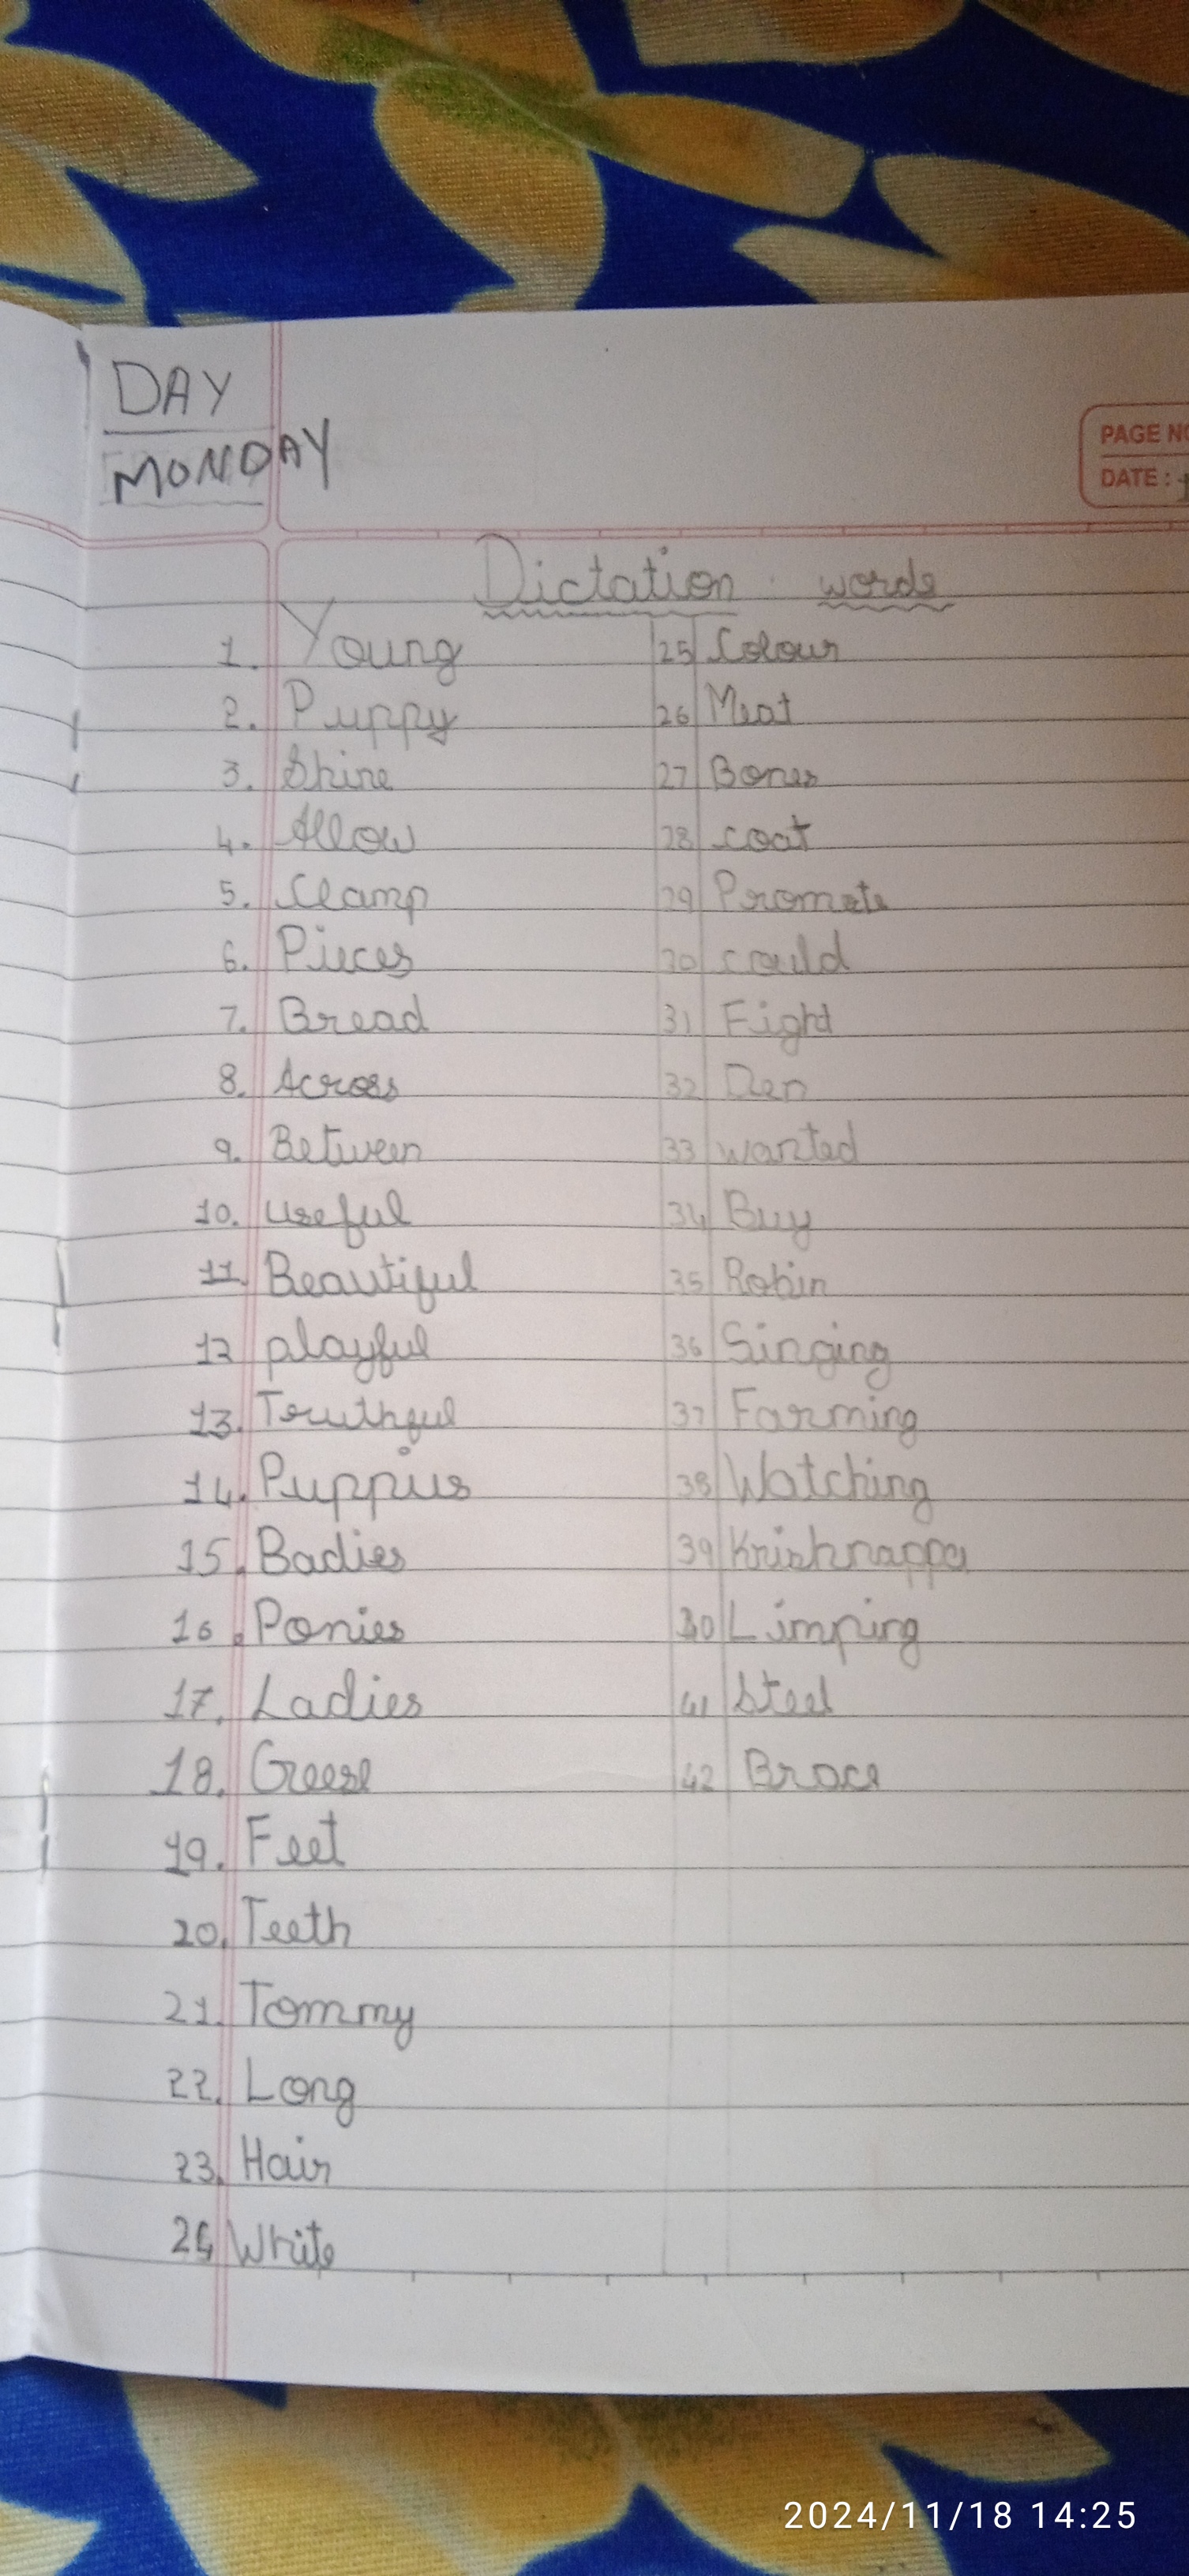 DAY
MONDAY
PAGE NO
DATE :
Dictation words
1. Young
2. Puppy
3. Shine
4. Allow
5. Clamp
6. Pieces
7. Bread
8. Across
9. Between
10. useful
11. Beautiful
12 playful
13. Truthful
14. Puppies
15. Badies
16. Ponies
17. Ladies
18. Geese
19. Feet
20. Teeth
21. Tommy
22. Long
23. Hair
24 White
25 Colour
26 Meat
27 Bones
28 coat
29 Promote
30 could
31 Fight
32 Den
33 wanted
34 Buy
35 Robin
36 Singing
37 Farming
38 Watching
39 Krishnappa
40 Limping
41 Steel
42 Brace
2024/11/18 14:25